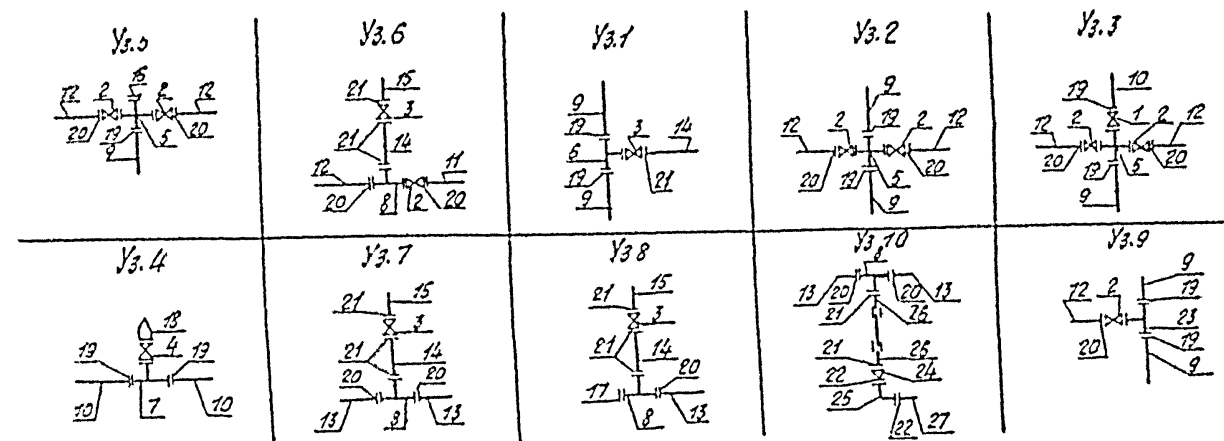 Уз.5
15
12 2 2 12
20 19 5 20
9
Уз.6
21 15
3
21 14
12 11
20 8 2 20
Уз.1
9
19 3 14
6
19 21
9
Уз.2
9
19
12 2 2 12
20 19 5 20
9
Уз.3
10
19
1
12 2 2 12
20 18 5 20
9
Уз.4
18
4
19 19
10 7 10
Уз.7
15
21
3
21 14
20 20
13 8 13
Уз8
15
21
3
21 14
20
17 8 13
Уз.10
8
13 20 20 13
21 26
21 25
22 24
25 22 27
Уз.9
9
12 2 19
23
20 19
9